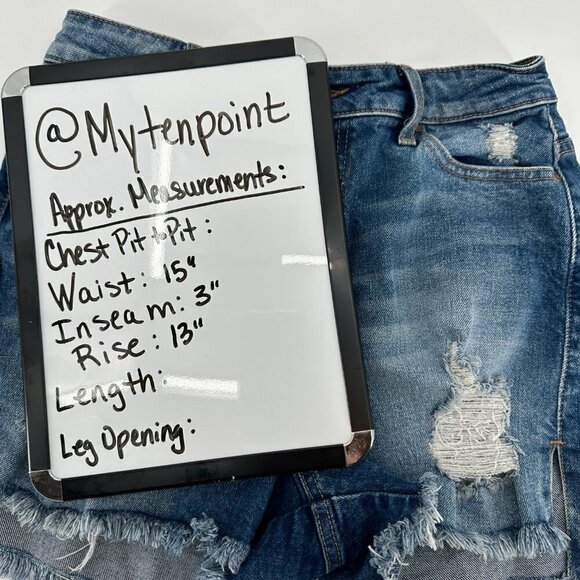 @Mytenpoint
Approx. Measurements:
Chest Pit to Pit:
Waist: 15"
Inseam: 3"
Rise: 13"
Length:
Leg Opening: